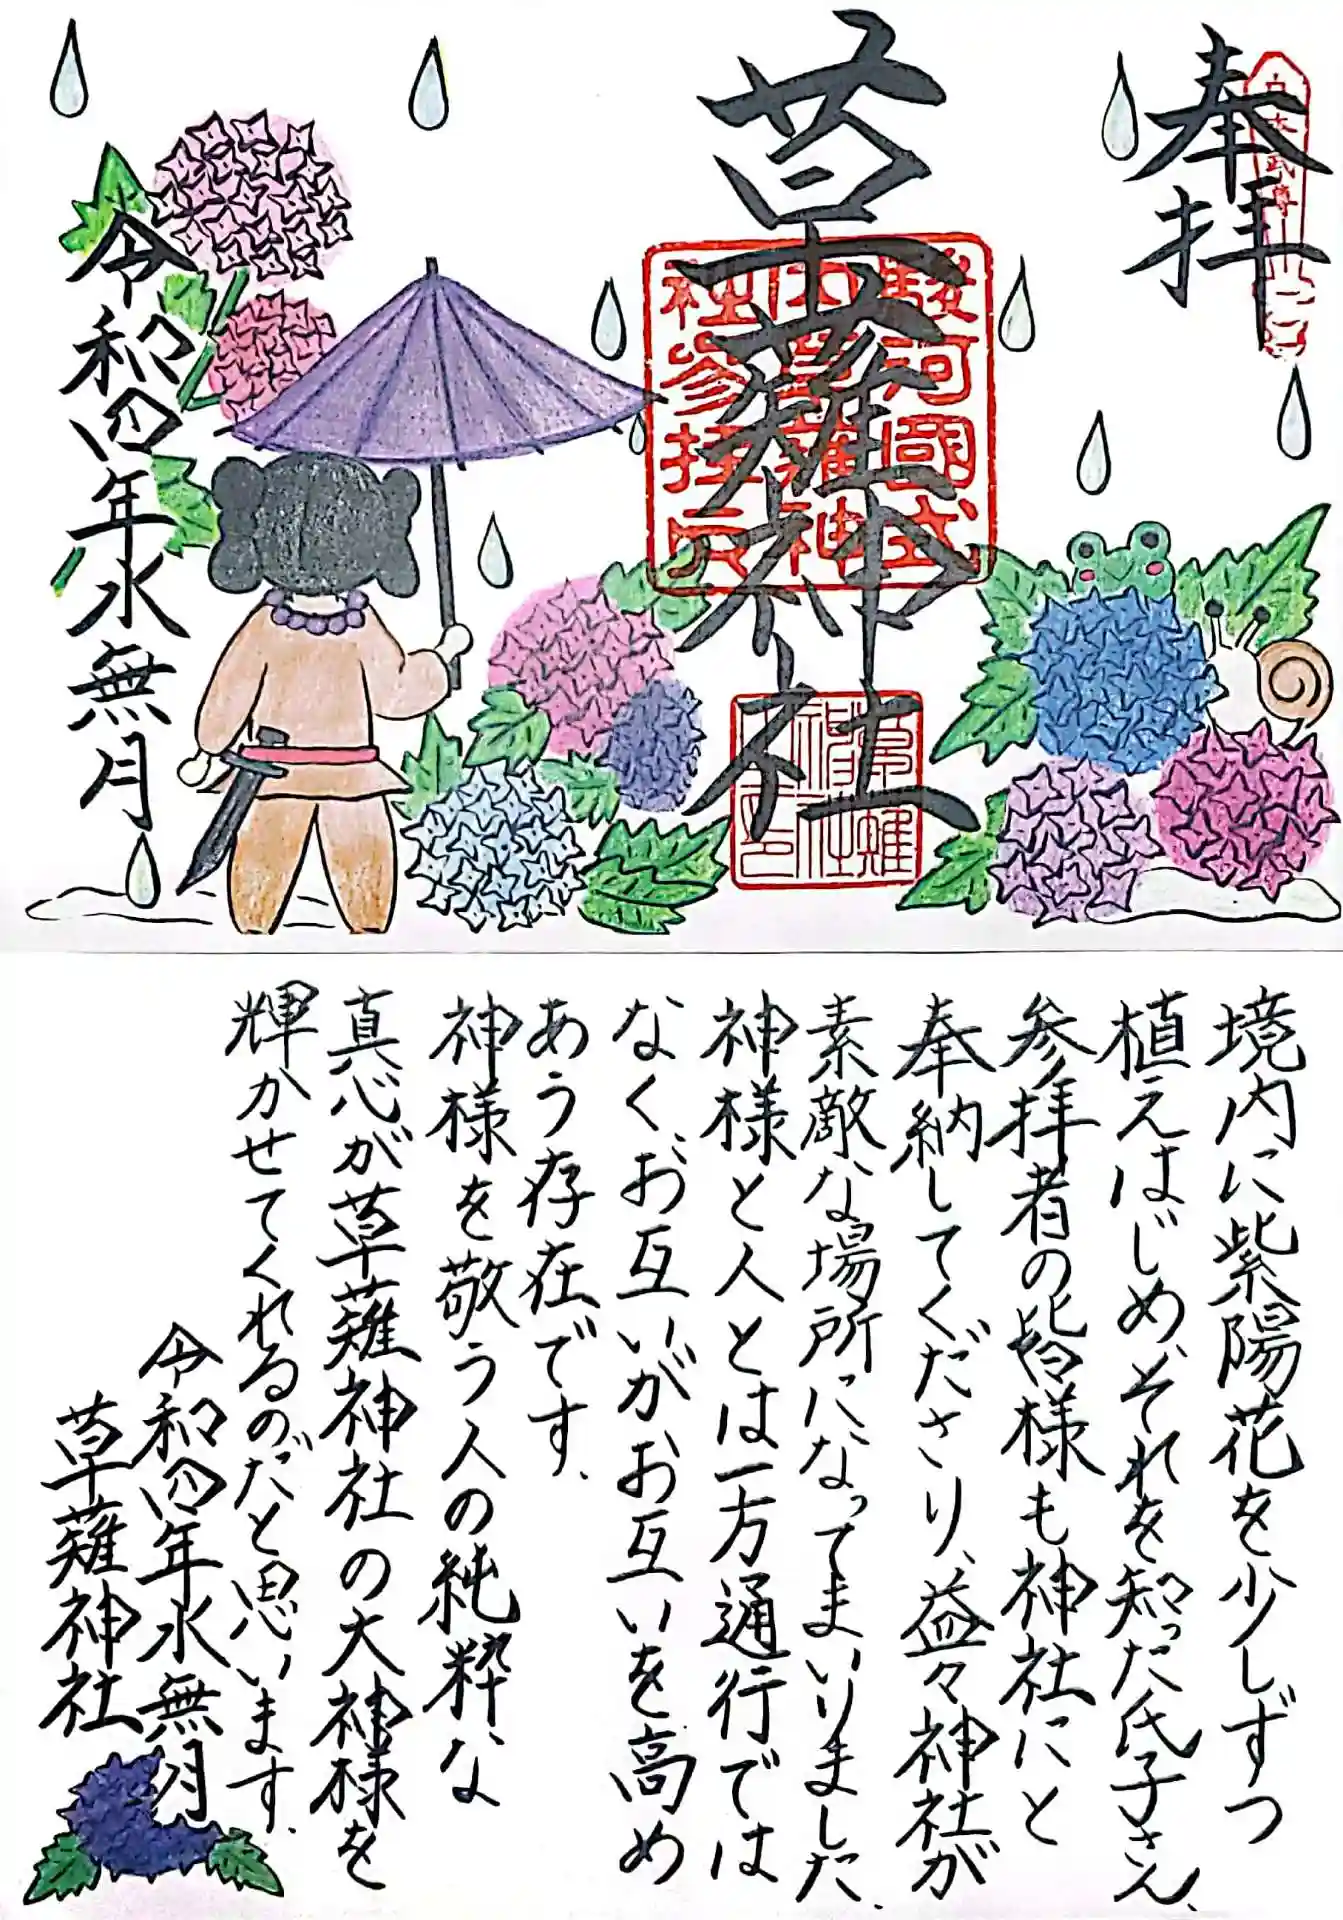 奉拝
日本武尊
草薙神社
駿河國式
内草薙神
社参拝之
草薙
神社
令和四年水無月
境内に紫陽花を少しずつ
植えはじめ、それを知った氏子さん、
参拝者の皆様も神社にと
奉納してくださり、益々神社が
素敵な場所になってまいりました。
神様と人とは一方通行では
なく、お互いがお互いを高め
あう存在です。
神様を敬う人の純粋な
真心が草薙神社の大神様を
輝かせてくれるのだと思います。
令和四年水無月
草薙神社